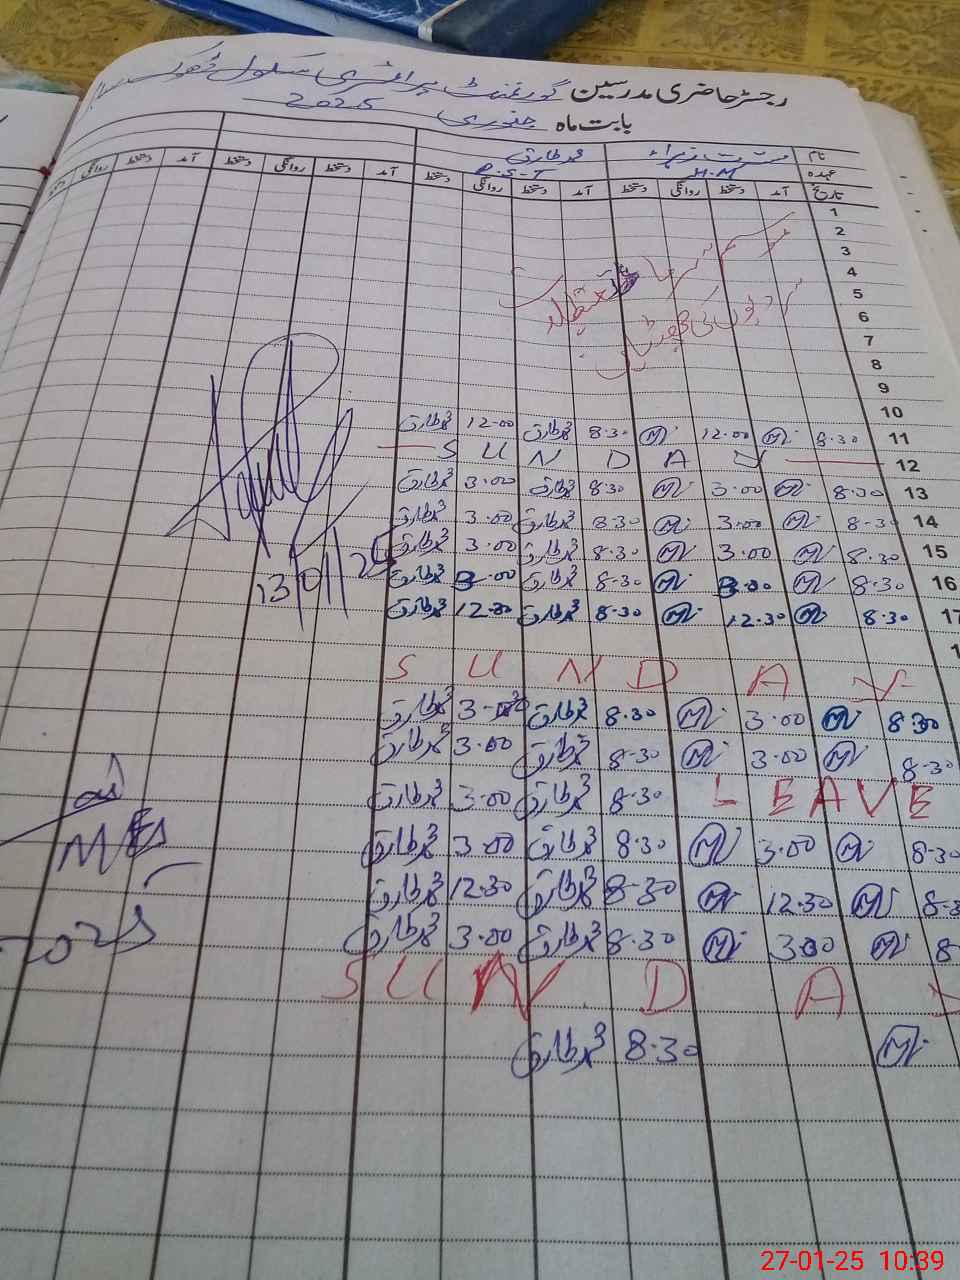 رجسٹر حاضری مدرسین گورنمنٹ پرائمری سکول ڈھوک
بابت ماہ جنوری 2025
نام مسرت زہراء محمد طارق
عہدہ H.M P.S.T
تاریخ آمد دستخط روانگی دستخط آمد دستخط روانگی دستخط آمد دستخط روانگی دستخط آمد دستخط روانگی دستخط
1
2
3
موسم سرما تعطیلات
4
5
سردیوں کی چھٹیاں
6
7
8
9
10
11 8.30 12.00 8.30 محمد طارق 12.00 محمد طارق
12 SUNDAY
13 8.30 3.00 8.30 محمد طارق 3.00 محمد طارق
14 8.30 3.00 8.30 محمد طارق 3.00 محمد طارق
15 8.30 3.00 8.30 محمد طارق 3.00 محمد طارق
16 8.30 3.00 8.30 محمد طارق 3.00 محمد طارق
17 8.30 12.30 8.30 محمد طارق 12.30 محمد طارق
13/01/25
SUNDAY
8.30 3.00 8.30 محمد طارق 3.00 محمد طارق
8.30 3.00 8.30 محمد طارق 3.00 محمد طارق
LEAVE 8.30 محمد طارق 3.00 محمد طارق
8.30 3.00 8.30 محمد طارق 3.00 محمد طارق
12.30 8.30 محمد طارق 12.30 محمد طارق
3.00 8.30 محمد طارق 3.00 محمد طارق
SUNDAY
8.30 محمد طارق
27-01-25 10:39